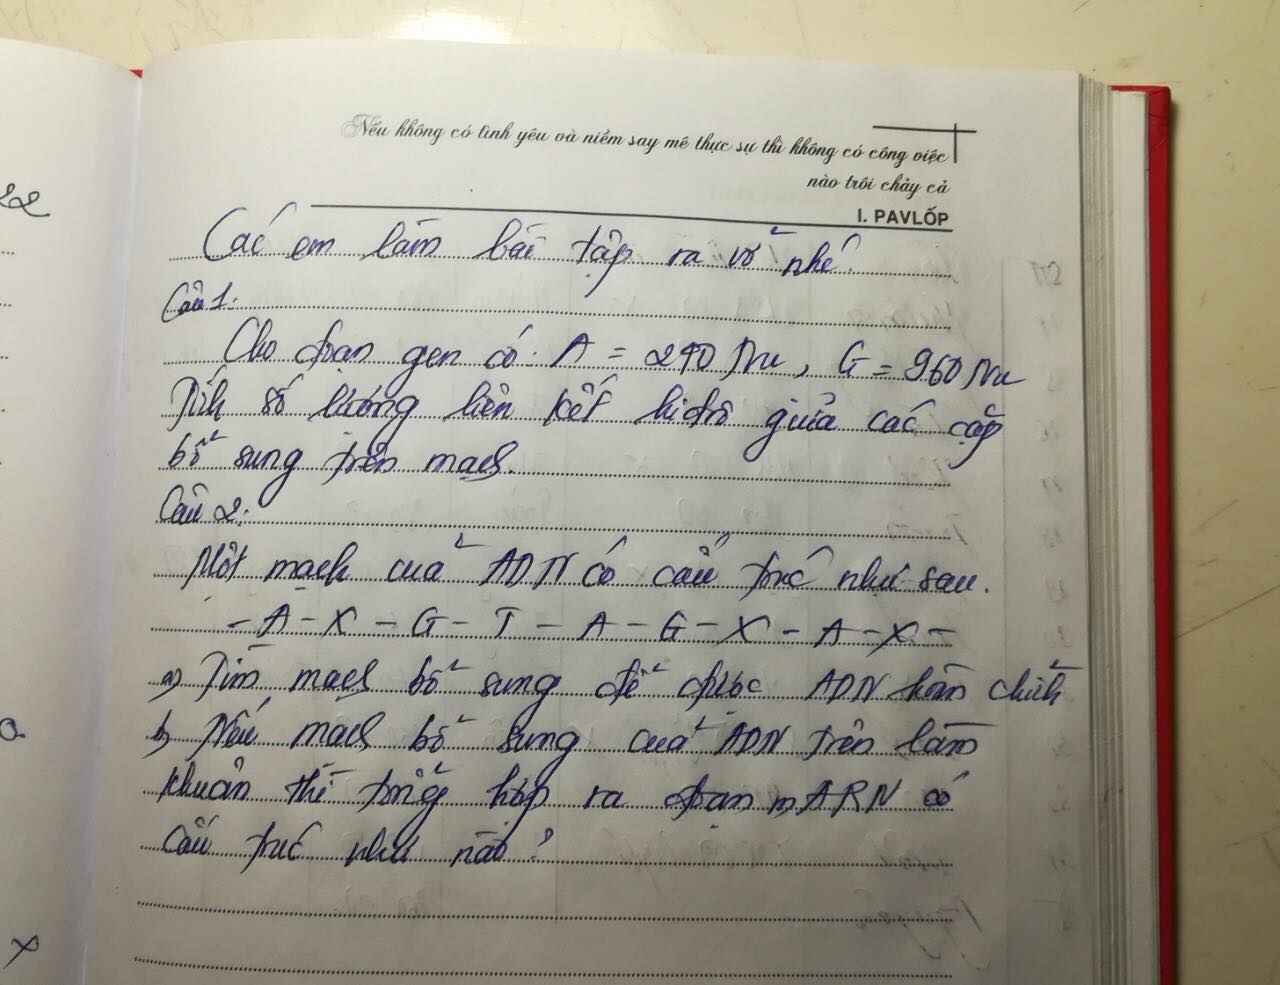 Nếu không có tình yêu và niềm say mê thực sự thì không có công việc
nào trôi chảy cả
I. PAVLỐP
Các em làm bài tập ra vở nhé.
Câu 1:
Cho đoạn gen có: A = 240 Nu, G = 960 Nu
Tính số lượng liên kết hiđrô giữa các cặp
bổ sung trên mạch.
Câu 2:
Một mạch của ADN có cấu trúc như sau.
- A - X - G - T - A - G - X - A - X -
a) Tìm mạch bổ sung để được ADN hoàn chỉnh
b) Nếu mạch bổ sung của ADN trên làm
khuôn thì tổng hợp ra đoạn mARN có
cấu trúc như nào?
22